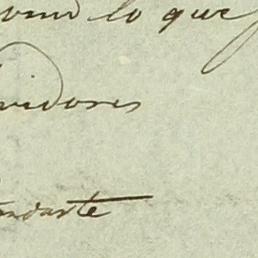 lo que
vidores
ndarte